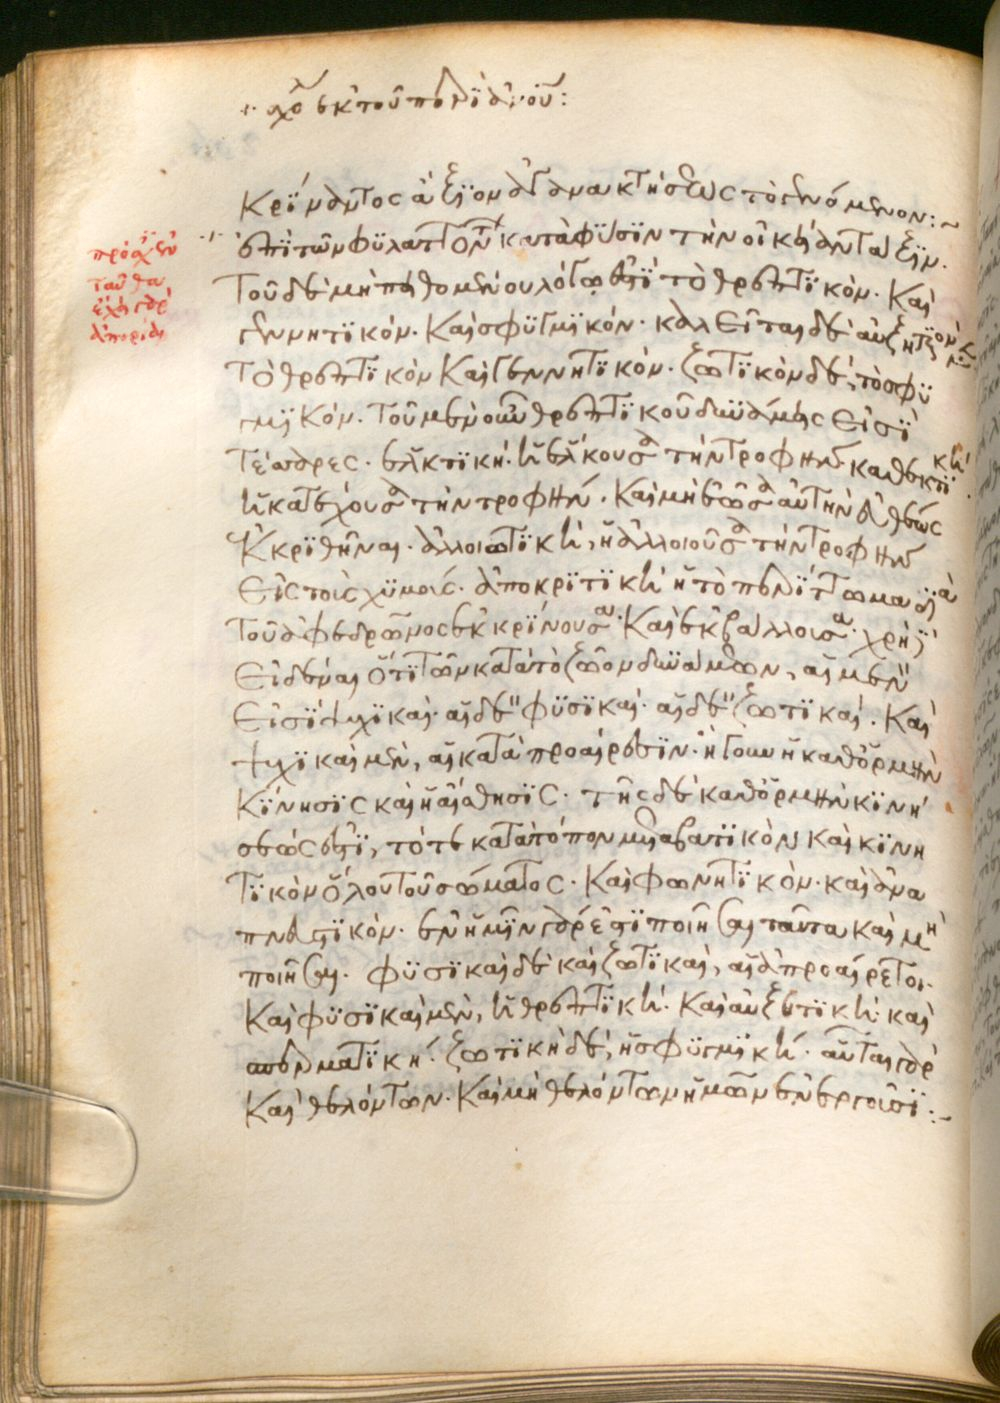 κρίμαντος ἄξιον ἅγαμα κτήσεως τὸ γενόμενον:~
ἐπὶ τῶν φυλαττόντων κατὰ φύσιν τὴν οἰκείαν τάξιν.
Τοῦ δὲ μὴ πειθομένου λόγῳ ἐστὶ τὸ θρεπτικόν. Καὶ
γεννητικόν. Καὶ σφυγμικόν. καλεῖται δὲ αὐξητικὸν μὲν
Τὸ θρεπτικὸν καὶ γεννητικόν. ζωτικὸν δὲ, τὸ σφυ
γμικόν. Τοῦ μὲν οὖν θρεπτικοῦ δυνάμεις εἰσὶ
Τέσσαρες. ἑλκτικὴ. ἡ ἕλκουσα τὴν τροφήν. καθεκτικὴ
ἡ κατέχουσα τὴν τροφήν. Καὶ μὴ ἐῶσα αὐτὴν εὐθέως
ἐκκριθῆναι. ἀλλοιωτικὴ, ἡ ἀλλοιοῦσα τὴν τροφὴν
εἰς τοὺς χυμούς. ἀποκριτικὴ ἡ τὸ περίττωμα διὰ
Τοῦ ἀφεδρῶνος ἐκκρίνουσα. Καὶ ἐκβάλλουσα. χρὴ
εἰδέναι ὅτι τῶν κατὰ τὸ ζῶον δυνάμεων, αἱ μὲν
εἰσὶ ψυχικαὶ. αἱ δὲ φυσικαὶ. αἱ δὲ ζωτικαί. Καὶ
ψυχικαὶ μὲν, αἱ κατὰ προαίρεσιν. ἤγουν ἡ καθ' ὁρμὴν
κίνησις καὶ ἡ αἴσθησις. τῆς δὲ καθ' ὁρμὴν κινή
σεως ἐστὶ, τό τε κατὰ τόπον μεταβατικὸν καὶ κινη
τικὸν ὅλου τοῦ σώματος. Καὶ φωνητικὸν. καὶ ἀνα
πνευστικόν. ἐν ἡμῖν γάρ ἐστι ποιῆσαι ταῦτα καὶ μὴ
ποιῆσαι. φυσικαὶ δὲ καὶ ζωτικαὶ, αἱ ἀπροαίρετοι.
Καὶ φυσικαὶ μὲν, ἡ θρεπτικὴ. Καὶ αὐξητικὴ. καὶ
σπερματικὴ. ζωτικὴ δὲ, ἡ σφυγμική. αὗται γὰρ
καὶ θελόντων. Καὶ μὴ θελόντων ἡμῶν ἐνεργοῦσι:~